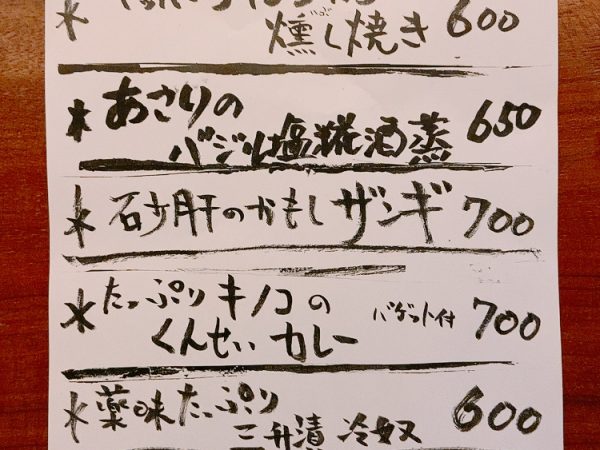 燻し焼き 600
いぶ
* あさりの
バジル塩糀酒蒸 650
* 砂肝のかもしザンギ 700
* たっぷりキノコの
くんせいカレー バゲット付 700
* 薬味たっぷり
三升漬 冷奴 600